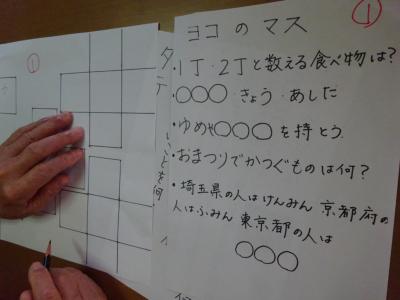 ①
ヨコ の マス
・1丁・2丁と数える食べ物は?
・○○○・きょう・あした
・ゆめや○○○を持とう
・おまつりでかつぐものは何?
・埼玉県の人はけんみん 京都府の
人はふみん 東京都の人は
○○○
①
タテ